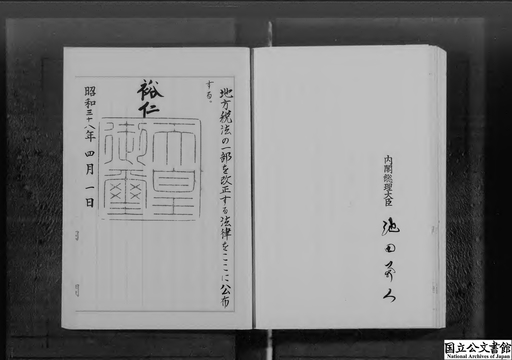 地方税法の一部を改正する法律をここに公布
する。
裕仁
天皇
御璽
昭和三十八年 四月 一日
内閣総理大臣
池田勇人
国立公文書館
National Archives of Japan